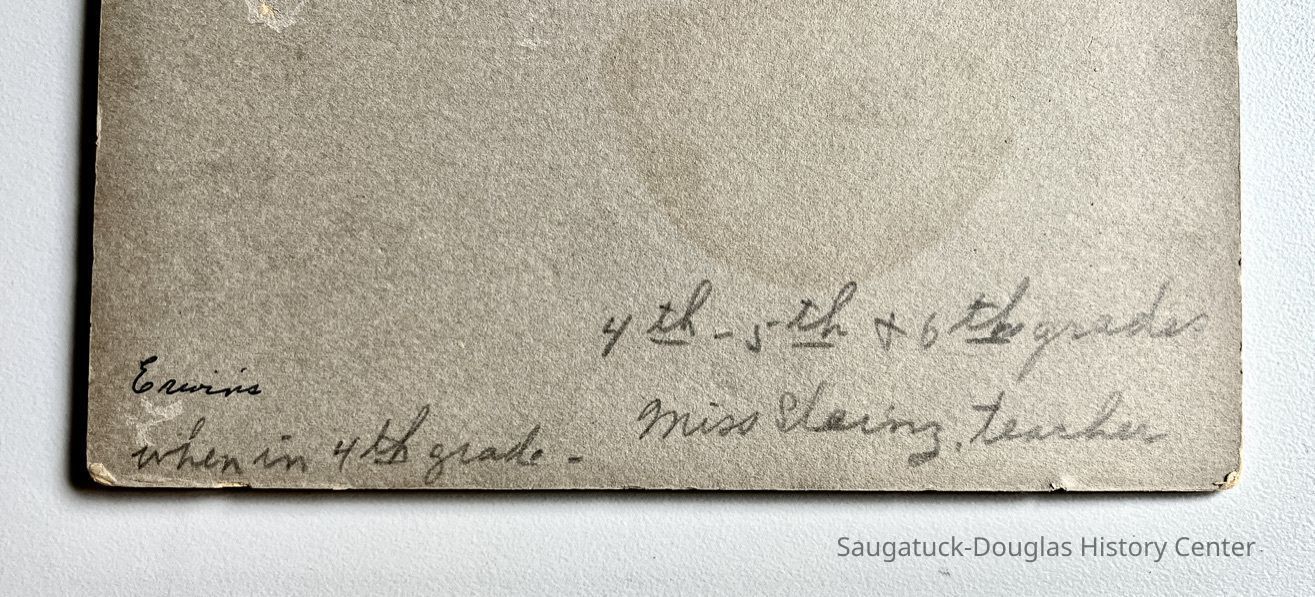 4th - 5th & 6th grades
Miss, teacher
Erwin's
when in 4th grade -
Saugatuck-Douglas History Center